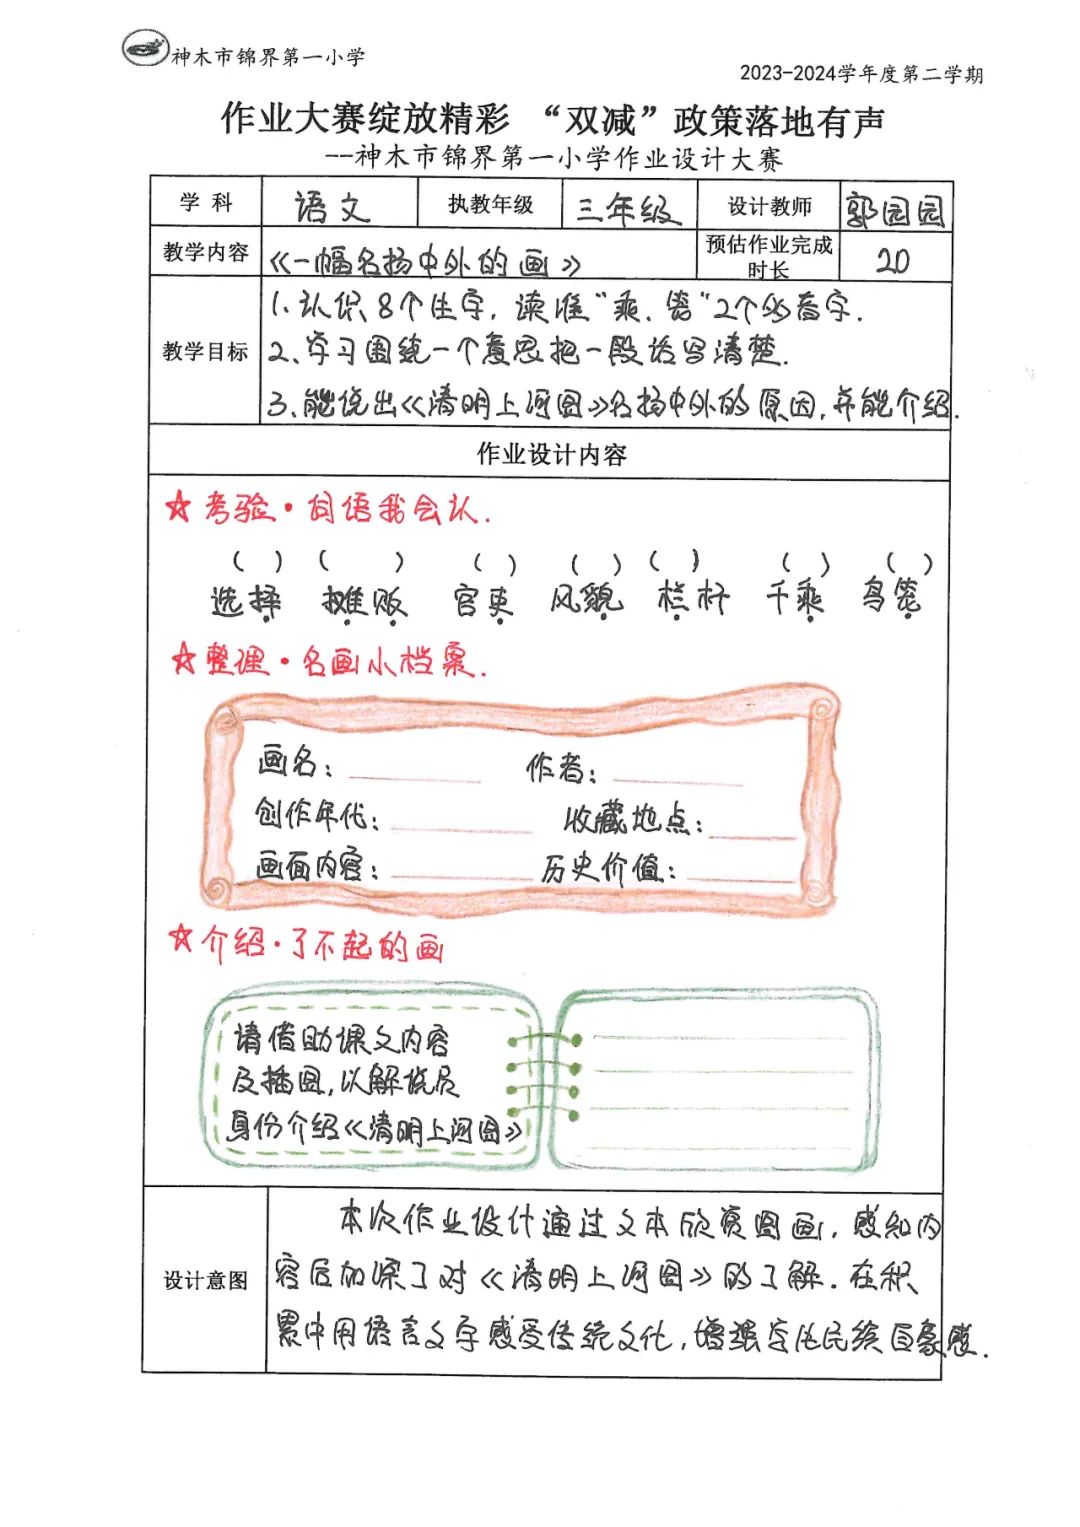 神木市锦界第一小学
2023-2024学年度第二学期
作业大赛绽放精彩 “双减”政策落地有声
--神木市锦界第一小学作业设计大赛
学 科 语文 执教年级 三年级 设计教师 郭园园
教学内容 《一幅名扬中外的画》 预估作业完成时长 20
教学目标
1.认识8个生字，读准“乘、笼”2个多音字.
2、学习围绕一个意思把一段话写清楚.
3、能说出《清明上河图》名扬中外的原因，并能介绍.
作业设计内容
☆考验·词语我会认.
( ) ( ) ( ) ( ) ( ) ( ) ( )
选择 摊贩 官吏 风貌 栏杆 千乘 鸟笼
☆整理·名画小档案.
画名：______ 作者：______
创作年代：______ 收藏地点：______
画面内容：______ 历史价值：______
☆介绍·了不起的画
请借助课文内容
及插图，以解说员
身份介绍《清明上河图》
设计意图
本次作业设计通过文本欣赏图画，感知内
容后加深了对《清明上河图》的了解.在积
累中用语言文字感受传统文化，增强学生民族自豪感.